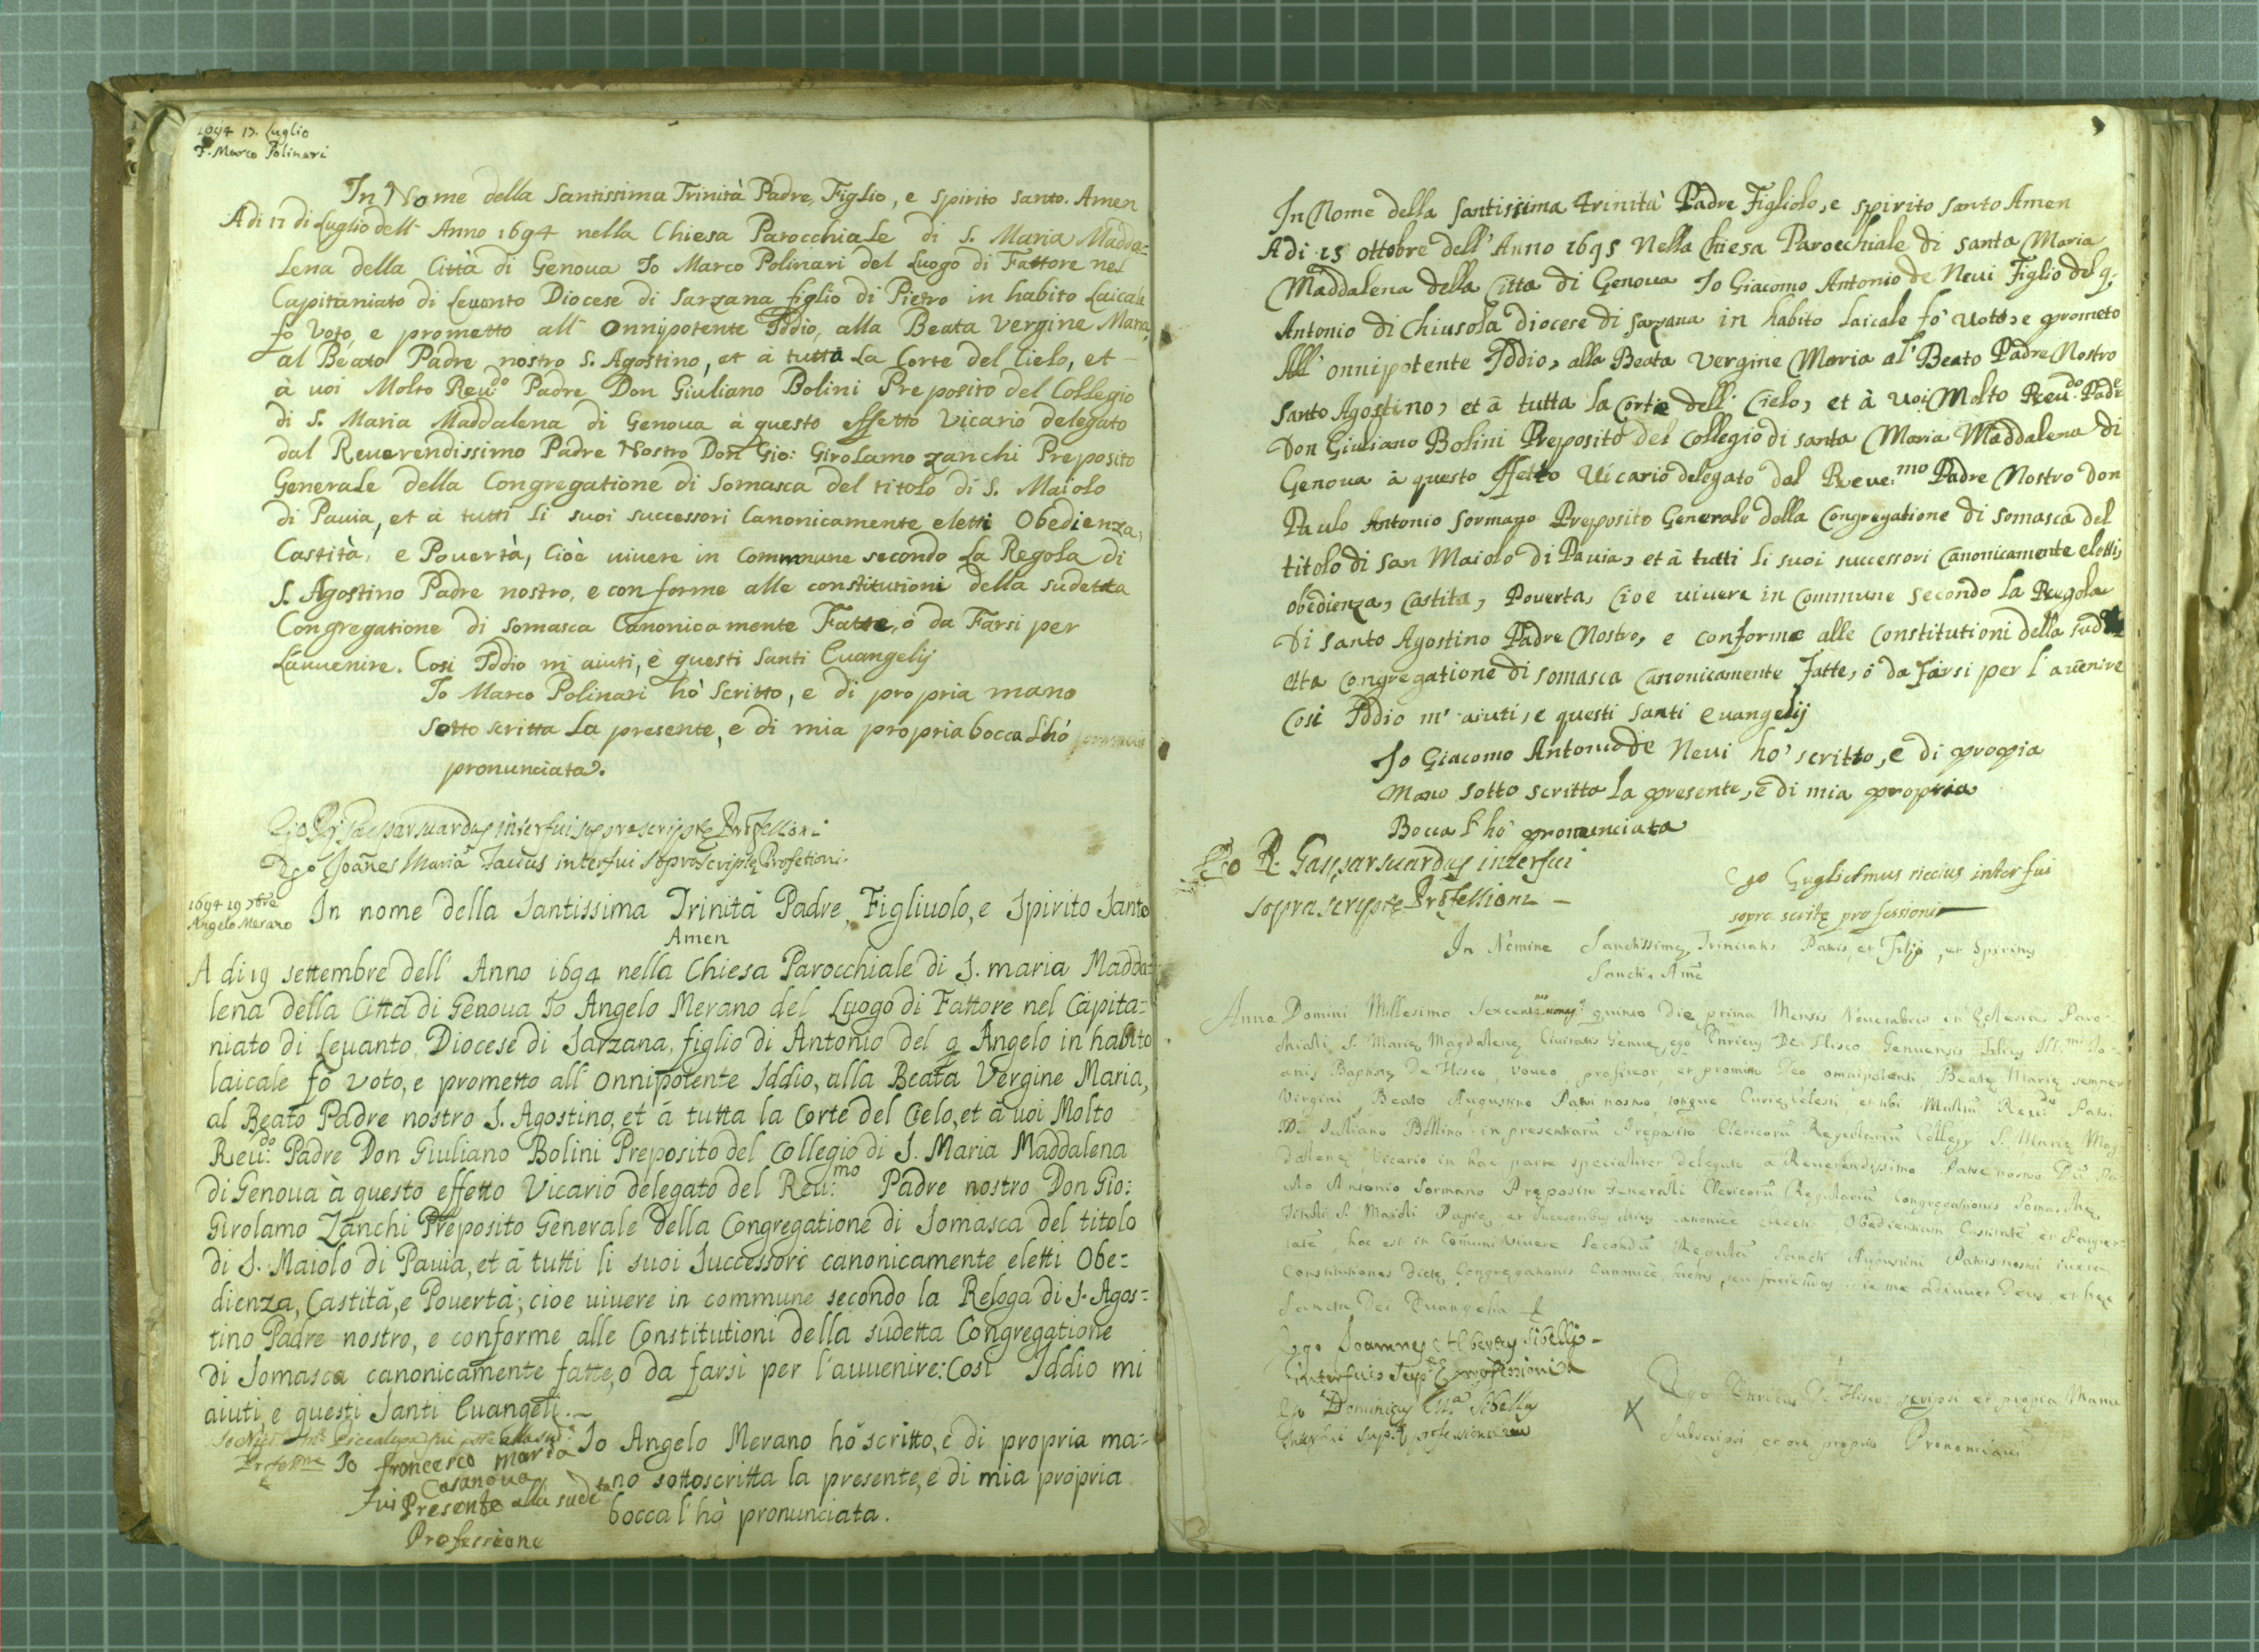 1694 17. Luglio
F. Marco Polinari
In Nome della Santissima Trinità Padre, Figlio, e Spirito Santo. Amen
A di 17 di Luglio dell' Anno 1694 nella Chiesa Parocchiale di S. Maria Madda=
Lena della Città di Genova Io Marco Polinari del Luogo di Fattore nel
Capitaniato di Levanto Diocese di Sarzana figlio di Pietro in habito Laicale
fo Voto, e prometto all' Onnipotente Iddio, alla Beata Vergine Maria,
al Beato Padre nostro S. Agostino, et à tutta La Corte del Cielo, et
à voi Molto Reu:do Padre Don Giuliano Bolini Preposito del Collegio
di S. Maria Maddalena di Genova à questo effetto Vicario delegato
dal Reverendissimo Padre Nostro Don Gio: Girolamo Zanchi Preposito
Generale della Congregatione di Somasca del titolo di S. Maiolo
di Pauia, et à tutti Li suoi successori Canonicamente eletti Obedienza,
Castità, e Pouertà, Cioè uiuere in Commune secondo La Regola di
S. Agostino Padre nostro, e con forme alle constitutioni della sudetta
Congregatione di Somasca Canonicamente Fatte, ò da Farsi per
Lauuenire. Cosi Iddio m aiuti, e questi Santi Euangelij
Io Marco Polinari hò Scritto, e di propria mano
sotto scritta La presente, e di mia propria bocca L'hó
pronunciata.
Ego Gaspar suardus interfui soprascriptę Professioni
Ego Joānes Maria interfui sopraScriptę Profetioni.
1694 19 7bre
Angelo Merano
In nome della Santissima Trinità Padre, Figliuolo, e Spirito Santo
Amen
A di 19 settembre dell' Anno 1694 nella Chiesa Parocchiale di S. maria Madda=
lena della Città di Genoua Io Angelo Merano del Luogo di Fattore nel Capita=
niato di Leuanto, Diocese di Sarzana, figlio di Antonio del q Angelo in habito
laicale fò voto, e prometto all' Onnipotente Iddio, alla Beata Vergine Maria,
al Beato Padre nostro S. Agostino, et à tutta la Corte del Cielo, et à uoi Molto
Reu:do Padre Don Giuliano Bolini Preposito del Collegio di S. Maria Maddalena
di Genoua à questo effetto Vicario delegato del Reu:mo Padre nostro Don Gio:
Girolamo Zanchi Preposito Generale della Congregatione di Somasca del titolo
di S. Maiolo di Pauia, et à tutti li suoi Successori canonicamente eletti Obe=
dienza, Castità, e Pouertà; cioe uiuere in commune secondo la Reloga di S. Agos=
tino Padre nostro, e conforme alle Constitutioni della sudetta Congregatione
di Somasca canonicamente fatte, o da farsi per l'auuenire: Cosi Iddio mi
aiuti, e questi Santi Euangeli.
Io Angelo Merano hò scritto, e di propria ma=
no sottoscritta la presente, e di mia propria
bocca l'hò pronunciata.
Io francesco maria
Casanova
fui Presente alla sudeta
Professione
In Nome della Santissima Trinità Padre Figliolo, e Spirito Santo Amen
A di 15 ottobre dell' Anno 1695 Nella Chiesa Parocchiale di Santa Maria
Maddalena della Citta di Genova Io Giacomo Antonio de Neui Figlio del q.
Antonio di Chiusola diocese di Sarzana in habito Laicale fo' Uoto, e prometo
All' onnipotente Iddio, alla Beata Vergine Maria al' Beato Padre Nostro
Santo Agostino, et à tutta la Corte dell' Cielo, et à Uoi Molto Reeu:do Padre
Don Giuliano Bolini Preposito del Collegio di santa Maria Maddalena Di
Genoua à questo effetto Uicario delegato dal Reue:mo Padre Nostro Don
Paulo Antonio Sormano Preposito Generale della Congregatione di Somasca del
titolo di San Maiolo di Pauia, et à tutti li suoi successori Canonicamente eletti,
obedienza, Castita, Pouerta, Cioe uiuere in Commune Secondo la Regola
Di Santo Agostino Padre Nostro, e conforme alle Constitutioni della sud
etta Congregatione di somasca Canonicamente fatte, ò da farsi per l'auenire
Cosi Iddio m' aiuti, e questi Santi euangelij
Io Giacomo Antonio de Neui ho' scritto, e di propia
Mano Sotto scritta la presente, e di mia propria
Bocca l'hò pronunciata
Ego R. Gaspar suardus interfui
soprascriptę Professioni
Ego Guglielmus riccius interfui
sopra scritę professioni
In Nomine Sanctissimę Trinitatis Patris, et Filij, et Spiritus
Sancti. Amē
Anno Domini Millesimo Sexcent.mo nonag.o quinto Die prima Mensis Nouembris in Eclesia Paro-
chiali S. Marię Magdalenę Ciuitatis Genuę, ego Enricus De Flisco Genuensis Filius Ill.mi Jo-
anis Baptistę De Flisco, voueo, profiteor, et promitto Deo omnipotenti, Beatę Marię semper
Virgini, Beato Augustino Patri nostro, totique Curię Celesti et tibi Multū Reu:do Patri
D. Juliano Bollino in presentiarū Preposito Clericorū Regulariū Collegij S. Marię Mag-
dalenę, Vicario in hac parte specialiter delegato a Reuerendissimo Patre nostro Dō Pa-
ulo Antonio Sormano Pręposito Generali Clericorū Regulariū Congregationis Somaschę
Tituli S. Maioli Papię, et successoribus canonicè electis Obedientiam Castitatē et Pauper-
tatē, hoc est in Comuni Viuere Secundū Regulā Sancti Augustini Patris nostri iuxta
Constitutiones dictę Congregationis Canonicè factas, seu faciendas sic me adiuuet Deus, et hęc
Sancta Dei Euangelia
Ego Joannes Sibelly
interfui professioni
Ego Dominicus Sibelly
Interfui professioni
Ego Enricus De Flisco scripsi et propia Manu
Subscripsi et ore proprio Prononciaui